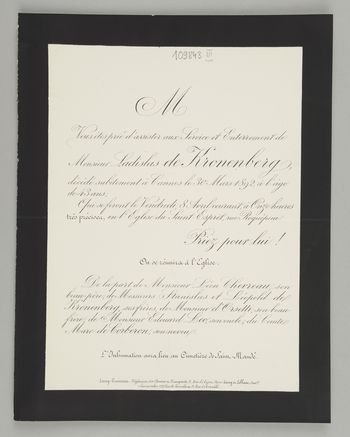 109843 III
M
Vous êtes prié d'assister aux Service et Enterrement de
Monsieur Ladislas de Kronenberg,
décédé subitement à Cannes le 30 Mars 1892, à l'âge
de 43 ans;
Qui se feront le Vendredi 8 Avril courant, à Onze heures
très précises, en l'Eglise du Saint Esprit, rue Roquépine.
Priez pour lui !
On se réunira à l'Eglise.
De la part de Monsieur Léon Chevreau, son
beau-père; de Messieurs Stanislas et Léopold de
Kronenberg, ses frères; de Monsieur d'Orsetti, son beau-
frère; de Monsieur Edouard Leo, son oncle; du Comte
Marc de Corberon, son neveu.
L'Inhumation aura lieu au Cimetière de Saint-Mandé.